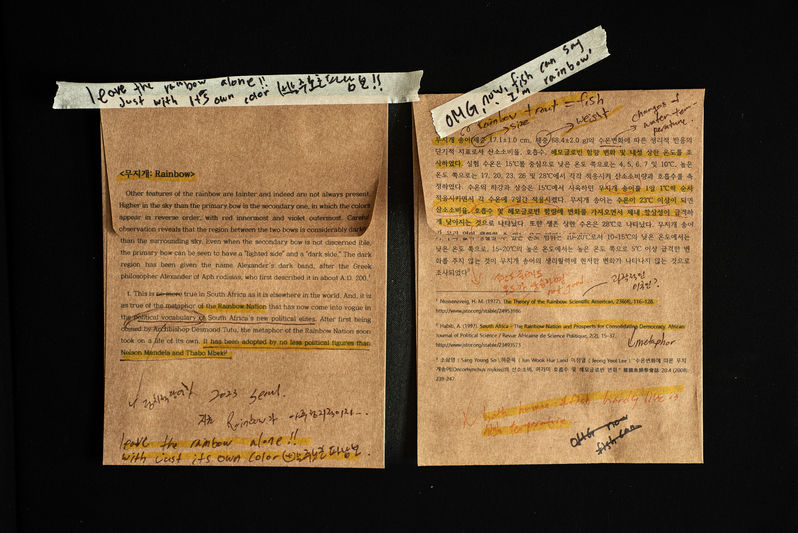 leave the rainbow alone!!
Just with it's own color
<무지개: Rainbow>
Other features of the rainbow are fainter and indeed are not always present.
Higher in the sky than the primary bow is the secondary one, in which the colors
appear in reverse order, with red innermost and violet outermost. Careful
observation reveals that the region between the two bows is considerably dark
than the surrounding sky. Even when the secondary bow is not discerned ible,
the primary bow can be seen to have a "lighted side" and a "dark side." The dark
region has been given the name Alexander's dark band, after the Greek
philosopher Alexander of Aph rodisias, who first described it in about A.D. 200.¹
t. This is no more true in South Africa as it is elsewhere in the world. And, it is
as true of the metaphor of the Rainbow Nation that has now come into vogue in
the political vocabulary of South Africa's new political elites. After first being
coined by Archbishop Desmond Tutu, the metaphor of the Rainbow Nation soon
took on a life of its own. It has been adopted by no less political figures than
Nelson Mandela and Thabo Mbeki²
2023 Seoul.
Rainbow가
leave the rainbow alone!!
with just its own color
OMG, now, fish can say
I'm rainbow.
rainbow trout = fish
size
weight
changes of
water tem-
perature.
무지개 송어(체장 17.1±1.0 cm, 체중 68.4±2.0 g)의 수온변화에 따른 생리적 반응의
단기적 지표로서 산소소비율, 호흡수, 헤모글로빈 함량 변화 및 내성 상한 온도를 조
사하였다. 실험 수온은 15℃를 중심으로 낮은 온도 쪽으로는 4, 5, 6, 7 및 10℃, 높은
온도 쪽으로는 17, 20, 23, 26 및 28℃에서 각각 적응시켜 산소소비량과 호흡수를 측
정하였다. 수온의 하강과 상승은 15℃에서 사육하던 무지개 송어를 1일 1℃씩 순차
적응시키면서 각 수온에 7일간 적응시켰다. 무지개 송어는 수온이 23℃ 이상이 되면
산소소비율, 호흡수 및 헤모글로빈 함량에 변화를 가져오면서 체내 항상성이 급격하
게 낮아지는 것으로 나타났다. 또한 생존 상한 수온은 28℃로 나타났다. 무지개 송어
낮은 온도 쪽으로, 15-20℃의 높은 온도에서는 높은 온도 쪽으로 5℃ 이상 급격한 변
화를 주지 않는 것이 무지개 송어의 생리활력에 현저한 변화가 나타나지 않는 것으로
조사되었다³
¹ Nussenzveig, H. M. (1977). The Theory of the Rainbow. Scientific American, 236(4), 116–128.
http://www.jstor.org/stable/24953986
² Habib, A. (1997). South Africa - The Rainbow Nation and Prospects for Consolidating Democracy. African
Journal of Political Science / Revue Africaine de Science Politique, 2(2), 15–37.
http://www.jstor.org/stable/23493573
metaphor
239-247.
OMG now
fish can